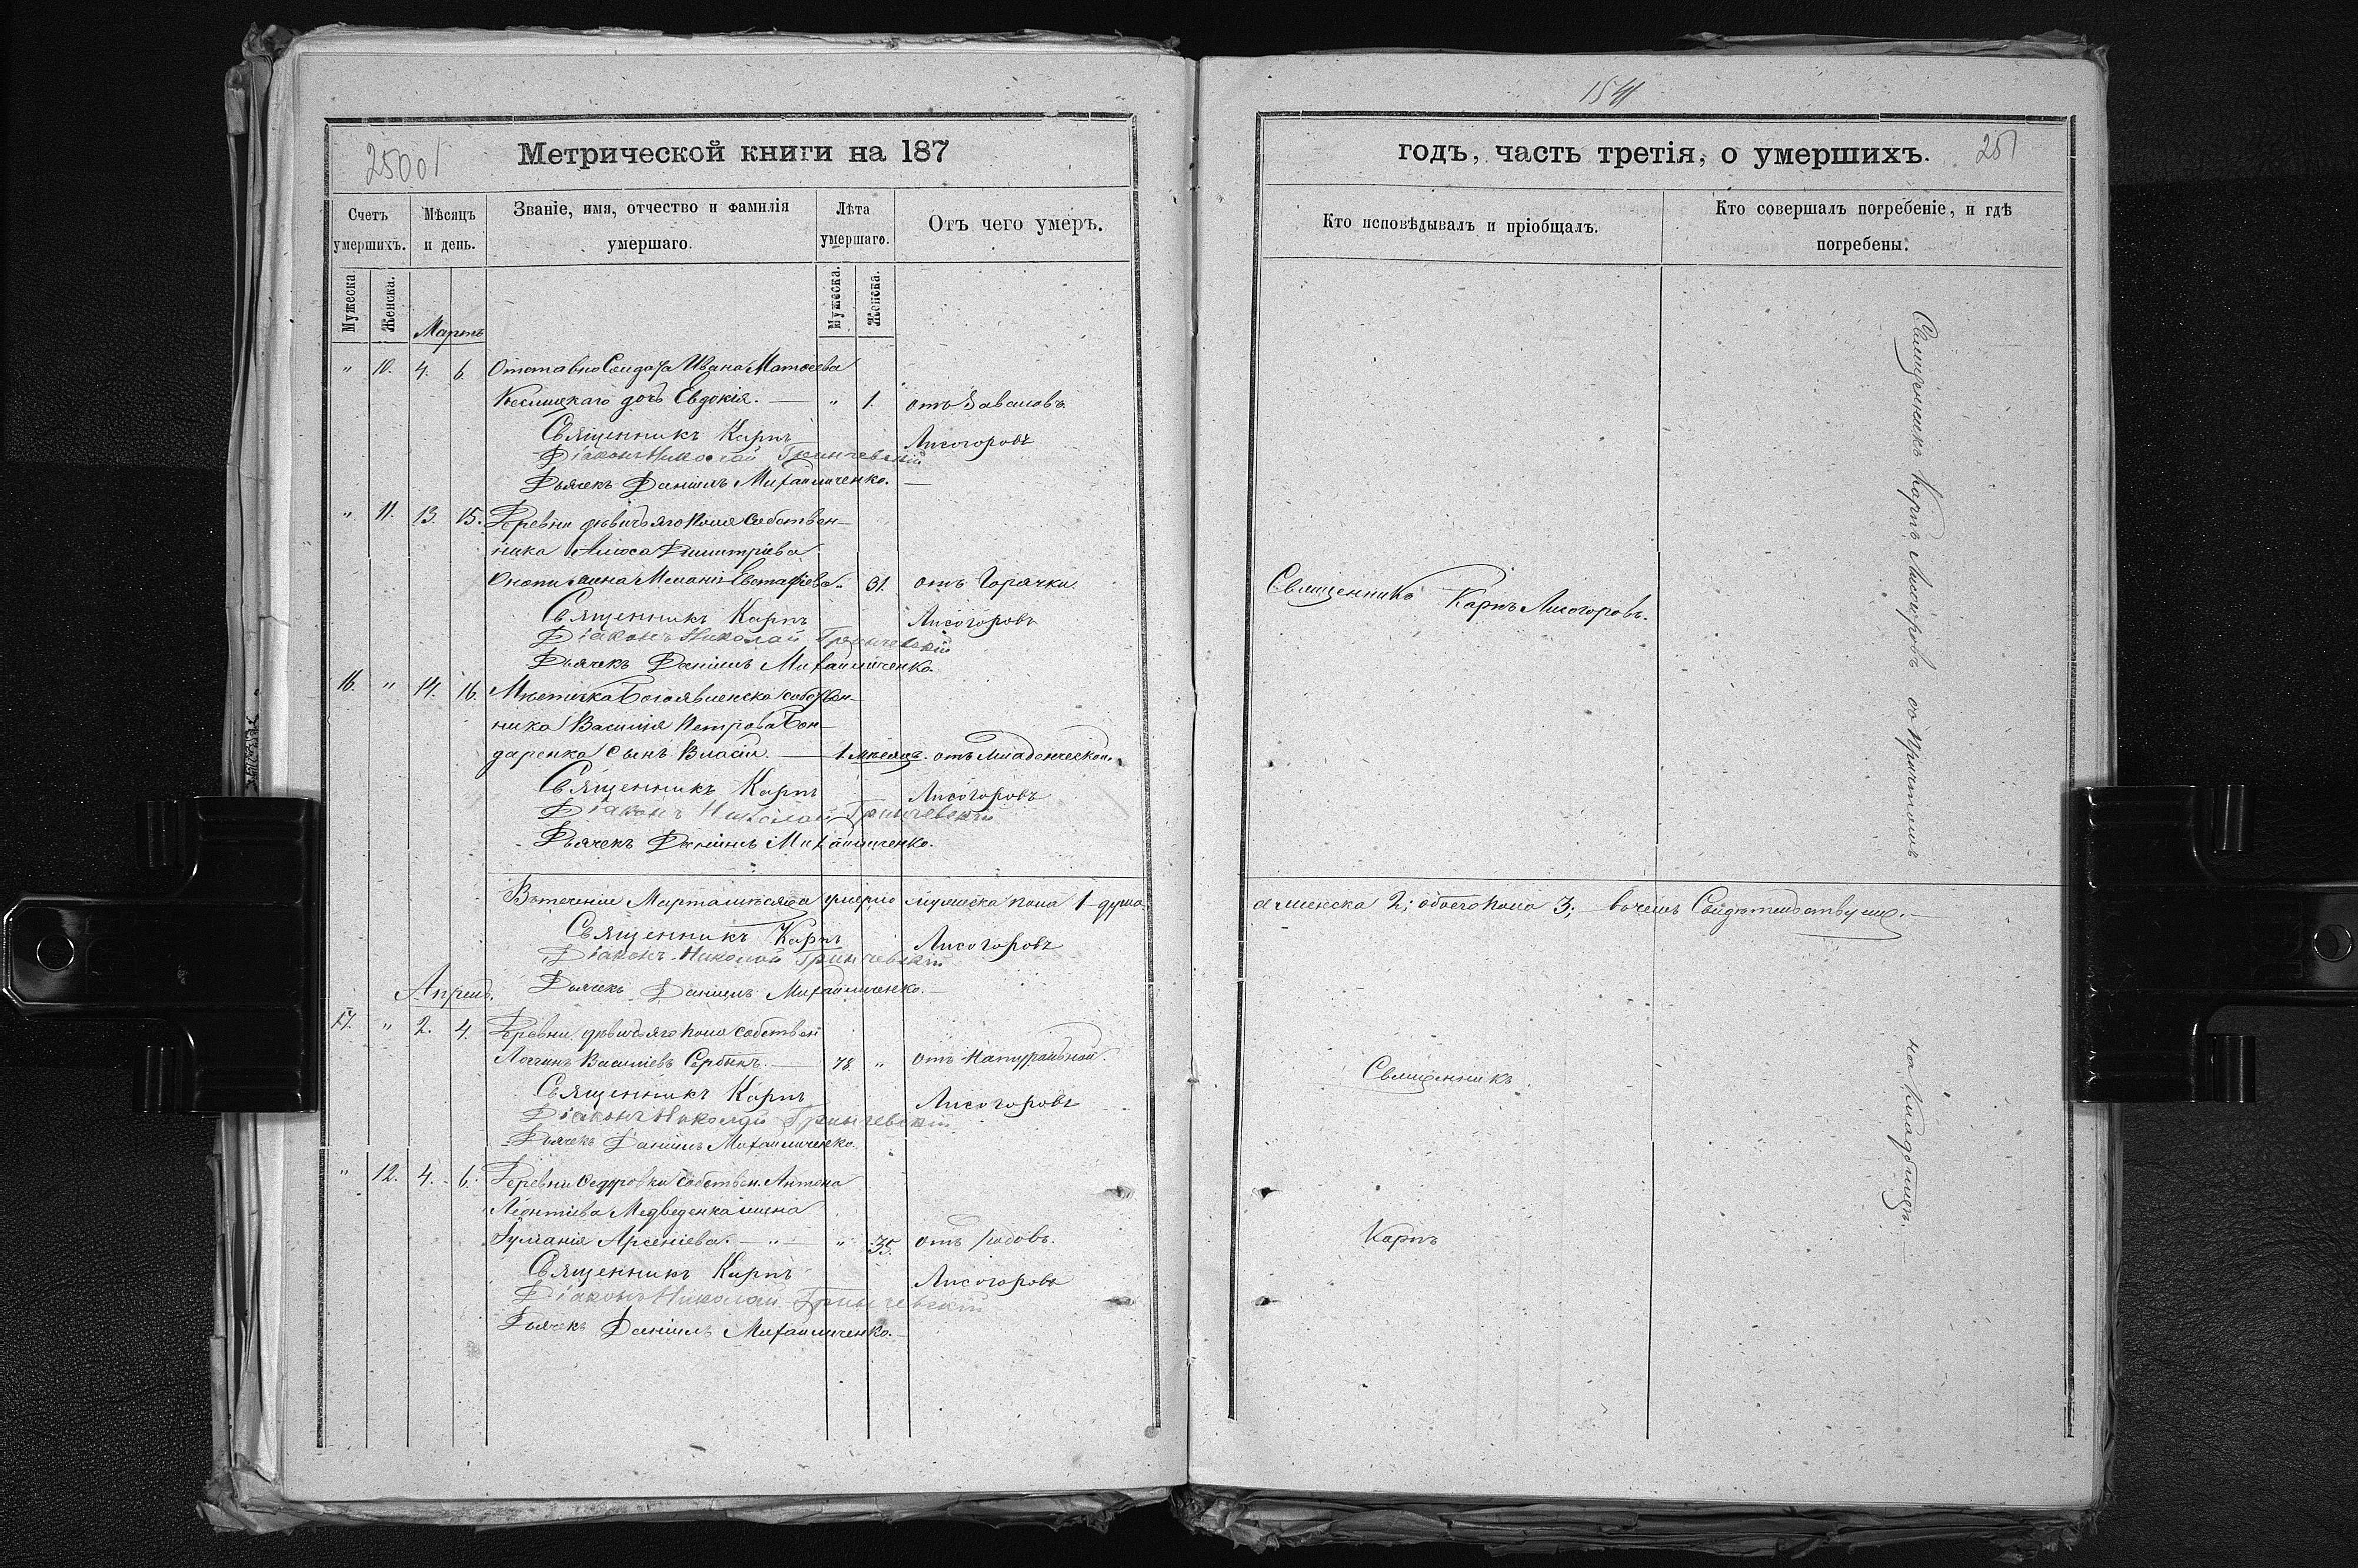 250об
Метрической книги на 187
Счетъ умершихъ.
Мѣсяцъ и день.
Званіе, имя, отчество и фамилія умершаго.
Лѣта умершаго.
Отъ чего умеръ.
Мужеска
Женска.
Мартъ
Мужеска.
Женска.
" 10. 4. 6. Отставно Солдата Ивана Матѳеева
дочь Евдокія. — " 1. отъ
Священникъ Карпъ Лисогоровъ
Діаконъ Николай Гринчевскій
Дьячекъ Даніилъ Михайличенко. —
" 11. 13. 15. Деревни дѣвичьяго поля собствен-
ника Димитріева
жена Меланія Евстафіева. 31. отъ Горячки.
Священникъ Карпъ Лисогоровъ
Діаконъ Николай Гринчевскій
Дьячекъ Даніилъ Михайличенко.
16. " 14. 16. Мѣстечка Богоявленска собствен-
ника Василія Петрова Бон-
даренка сынъ Власій. — 1 мѣсяцъ. отъ младенческой.
Священникъ Карпъ Лисогоровъ
Діаконъ Николай Гринчевскій
Дьячекъ Даніилъ Михайличенко.
Въ теченіи Марта мѣсяца умерло мужеска пола 1 душа.
Священникъ Карпъ Лисогоровъ
Діаконъ Николай Гринчевскій
Дьячекъ Даніилъ Михайличенко. —
Апрель.
17. " 2. 4. Деревни дѣвичьяго поля собствен
Васильевъ Сербинъ. — 78. " отъ Натуральной.
Священникъ Карпъ Лисогоровъ
Діаконъ Николай Гринчевскій
Дьячекъ Даніилъ Михайличенко.
" 12. 4. 6. Деревни Ѳедоровки собствен. Антона
Леонтіева Медведенка жена
Іуліанія Арсеніева. — " " 35. отъ родовъ.
Священникъ Карпъ Лисогоровъ
Діаконъ Николай Гринчевскій
Дьячекъ Даніилъ Михайличенко. —
251
годъ, часть третія, о умершихъ.
Кто исповѣдывалъ и пріобщалъ.
Кто совершалъ погребеніе, и гдѣ погребены.
Священникъ Карпъ Лисогоровъ.
а женска 2; обоего пола 3; — въ чемъ Свидѣтельствуемъ. —
Священникъ
Карпъ
Священникъ Карпъ Лисогоровъ съ причтомъ
на кладбищѣ.